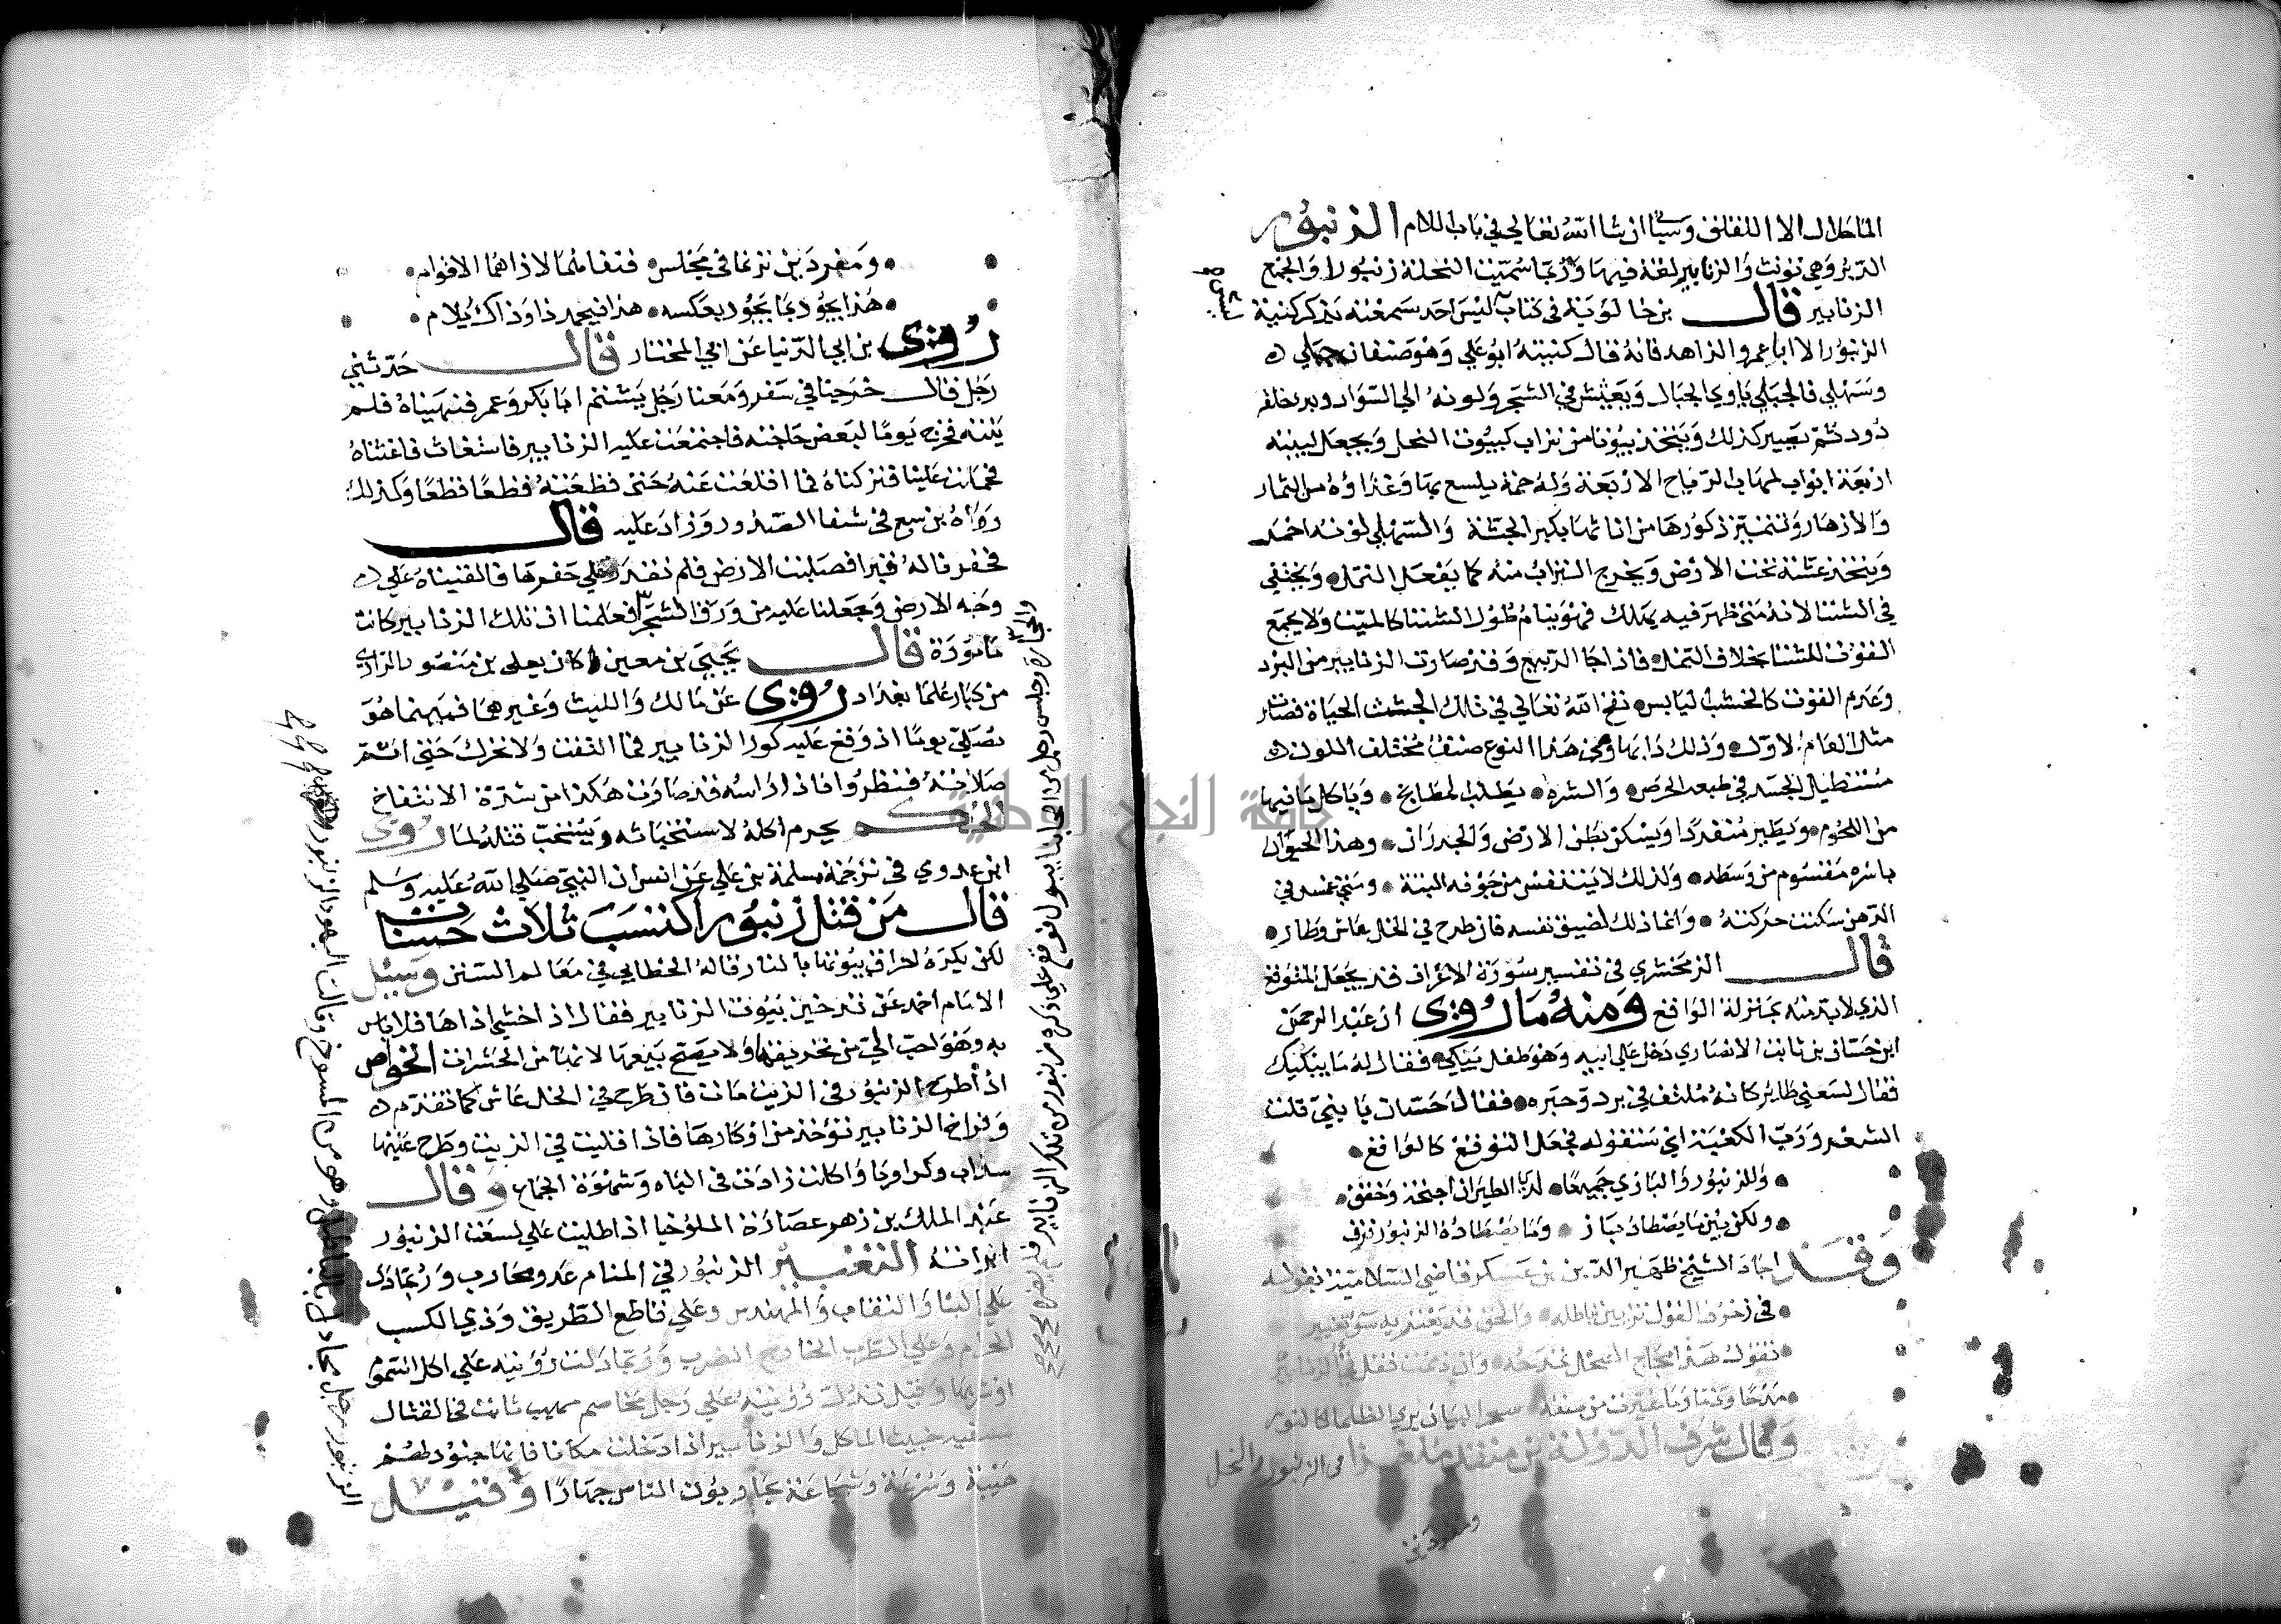 الما حلال الا اللقلق وسيا ان شا الله تعالي في باب اللام الزنبور
الدبر وهي تونث والزنابير لغة فيها وربما سميت النحلة زنبورا والجمع
الزنابير قال بن خالويه في كتاب ليس احد سمعته يذكر كنية
الزنبور الا ابا عمرو الزاهد فانه قال كنيته ابو علي وهو صنفان جبلي
وسهلي فالجبلي ياوي الجبال ويعيش في الشجر ولونه الي السواد وبد خلقه
دود ثم يصير كذلك ويتخذ بيوتا من تراب كبيوت النحل ويجعل لبيته
اربعة ابواب لمهاب الرياح الاربعة وله حمة يلسع بها وغذاوه من الثمار
والازهار وتتميز ذكورها من اناثها بكبر الجثة والسهلي لونه احمر
ويتخذ عشه تحت الارض ويخرج التراب منه كما يفعل النمل ويختفي
في الشتا لانه متي ظهر فيه يهلك فهو ينام طول الشتا كالميت ولا يجمع
القوت للشتا بخلاف النمل فاذا جا الربيع وقد صارت الزنابير من البرد
وعدم القوت كالخشب اليابس نفخ الله تعالي في تلك الجثث الحياة فعاشت
مثل العام الاول وذلك دابها وفي هذا النوع صنف مختلف اللون
مستطيل الجسد في طبعه الحرص والشره يطلب المطابخ وياكل ما فيها
من اللحوم ويطير منفردا ويسكن بطن الارض والجدران وهذا الحيوان
باسره مقسوم من وسطه ولذلك لا يتنفس من جوفه البتة ومتي غمس في
الدهن سكنت حركته وانما ذلك لضيق نفسه فان طرح في الخل عاش وطار
قال الزمخشري في تفسير سورة الاعراف قد يجعل المتوقع
الذي لابد منه بمنزلة الواقع ومنه ما روي ان عبد الرحمن
ابن حسان بن ثابت الانصاري دخل علي ابيه وهو طفل يبكي فقال له ما يبكيك
فقال لسعني طاير كانه ملتف في بردي حبره فقال حسان يا بني قلت
الشعر ورب الكعبة اي ستقوله فجعل المتوقع كالواقع
وللزنبور والبازي جميعا لدي الطيران اجنحة وخفق
ولكن بين ما يصطاد باز وما يصطاده الزنبور فرق
وقد اجاد الشيخ ظهير الدين بن عسكر قاضي السلامية بقوله
في زخرف القول تزيين لباطله والحق قد يعتريه سو تغيير
تقول هذا مجاج النحل تمدحه وان ذممت فقل قي الزنابير
مدحا وذما وما غيرت من صفة سحر البيان يري الظلما كالنور
وقال شرف الدولة بن منقذ ملغزا في الزنبور والنحل
ومغردين
ومغردين ترنما في مجلس فنفاهما لاذاهما الاقوام
هذا يجود بما يجود بعكسه هذا فيحمد ذا وذاك يلام
روي بن ابي الدنيا عن ابي المختار قال حدثني
رجل قال خرجنا في سفر ومعنا رجل يشتم ابا بكر وعمر فنهيناه فلم
ينته فخرج يوما لبعض حاجته فاجتمعت عليه الزنابير فاستغاث فاغثناه
فحملت علينا فتركناه فما اقلعت عنه حتي قطعته قطعا قطعا وكذلك
رواه بن سبع في شفا الصدور وزاد عليه قال
فحفرنا له قبرا فصلبت الارض فلم نقدر علي حفرها فالقيناه علي
وجه الارض وجعلنا عليه من ورق الشجر فعلمنا ان تلك الزنابير كانت
مامورة قال يحيي بن معين كان يعلي بن منصور الرازي
من كبار علما بغداد روي عن مالك والليث وغيرهما فبينما هو
يصلي يوما اذ وقع عليه كور الزنابير فما التفت ولا تحرك حتي اتم
صلاته فنظروا فاذا راسه قد صارت هكذا من شدة الانتفاخ
الحكم يحرم اكله لاستخباثه ويستحب قتله لما روي
ابن عدوي في ترجمة مسلمة بن علي عن انس ان النبي صلي الله عليه وسلم
قال من قتل زنبورا اكتسب ثلاث حسنات
لكن يكره احراق بيوتها بالنار قاله الخطابي في معالم السنن وسيل
الامام احمد عن تدخين بيوت الزنابير فقال اذ اخشي اذاها فلا باس
به وهو احب الي من تحريقها ولا يصح بيعها لانها من الحشرات الخواص
اذا طرح الزنبور في الزيت مات فان طرح في الخل عاش كما تقدم
وفراخ الزنابير توخذ من اوكارها فاذا اقليت في الزيت وطرح عليها
سذاب وكراويا واكلت زادت في الباه وشهوة الجماع وقال
عبد الملك بن زهر عصارة الملوخيا اذا طليت علي لسعت الزنبور
ابراته التعبير الزنبور في المنام عدو محارب وربما دل
علي البنا والنقاب والمهندس وعلي قاطع الطريق وذي الكسب
الحرام وعلي المطرب الخارج الضرب وربما دلت رويته علي اكل السموم
او شربها وقيل تدل رويته علي رجل مخاصم مهيب ثابت في القتال
سفيه خبيث الماكل والزنابير اذا دخلت مكانا فانها جنود لهم
هيبة وسرعة وشجاعة يحاربون الناس جهارا وقيل
الزنبور رجل مجادل بالباطل وهو من المسوخ وقالت اليهود الزنبور